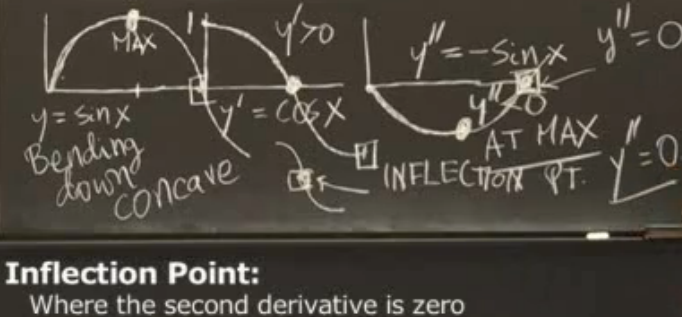 MAX
y = sin x
Bending
down
concave
1
y' > 0
y' = cos x
y'' = -sin x
y'' = 0
y'' < 0
AT MAX
INFLECTION PT.
y'' = 0
Inflection Point:
Where the second derivative is zero